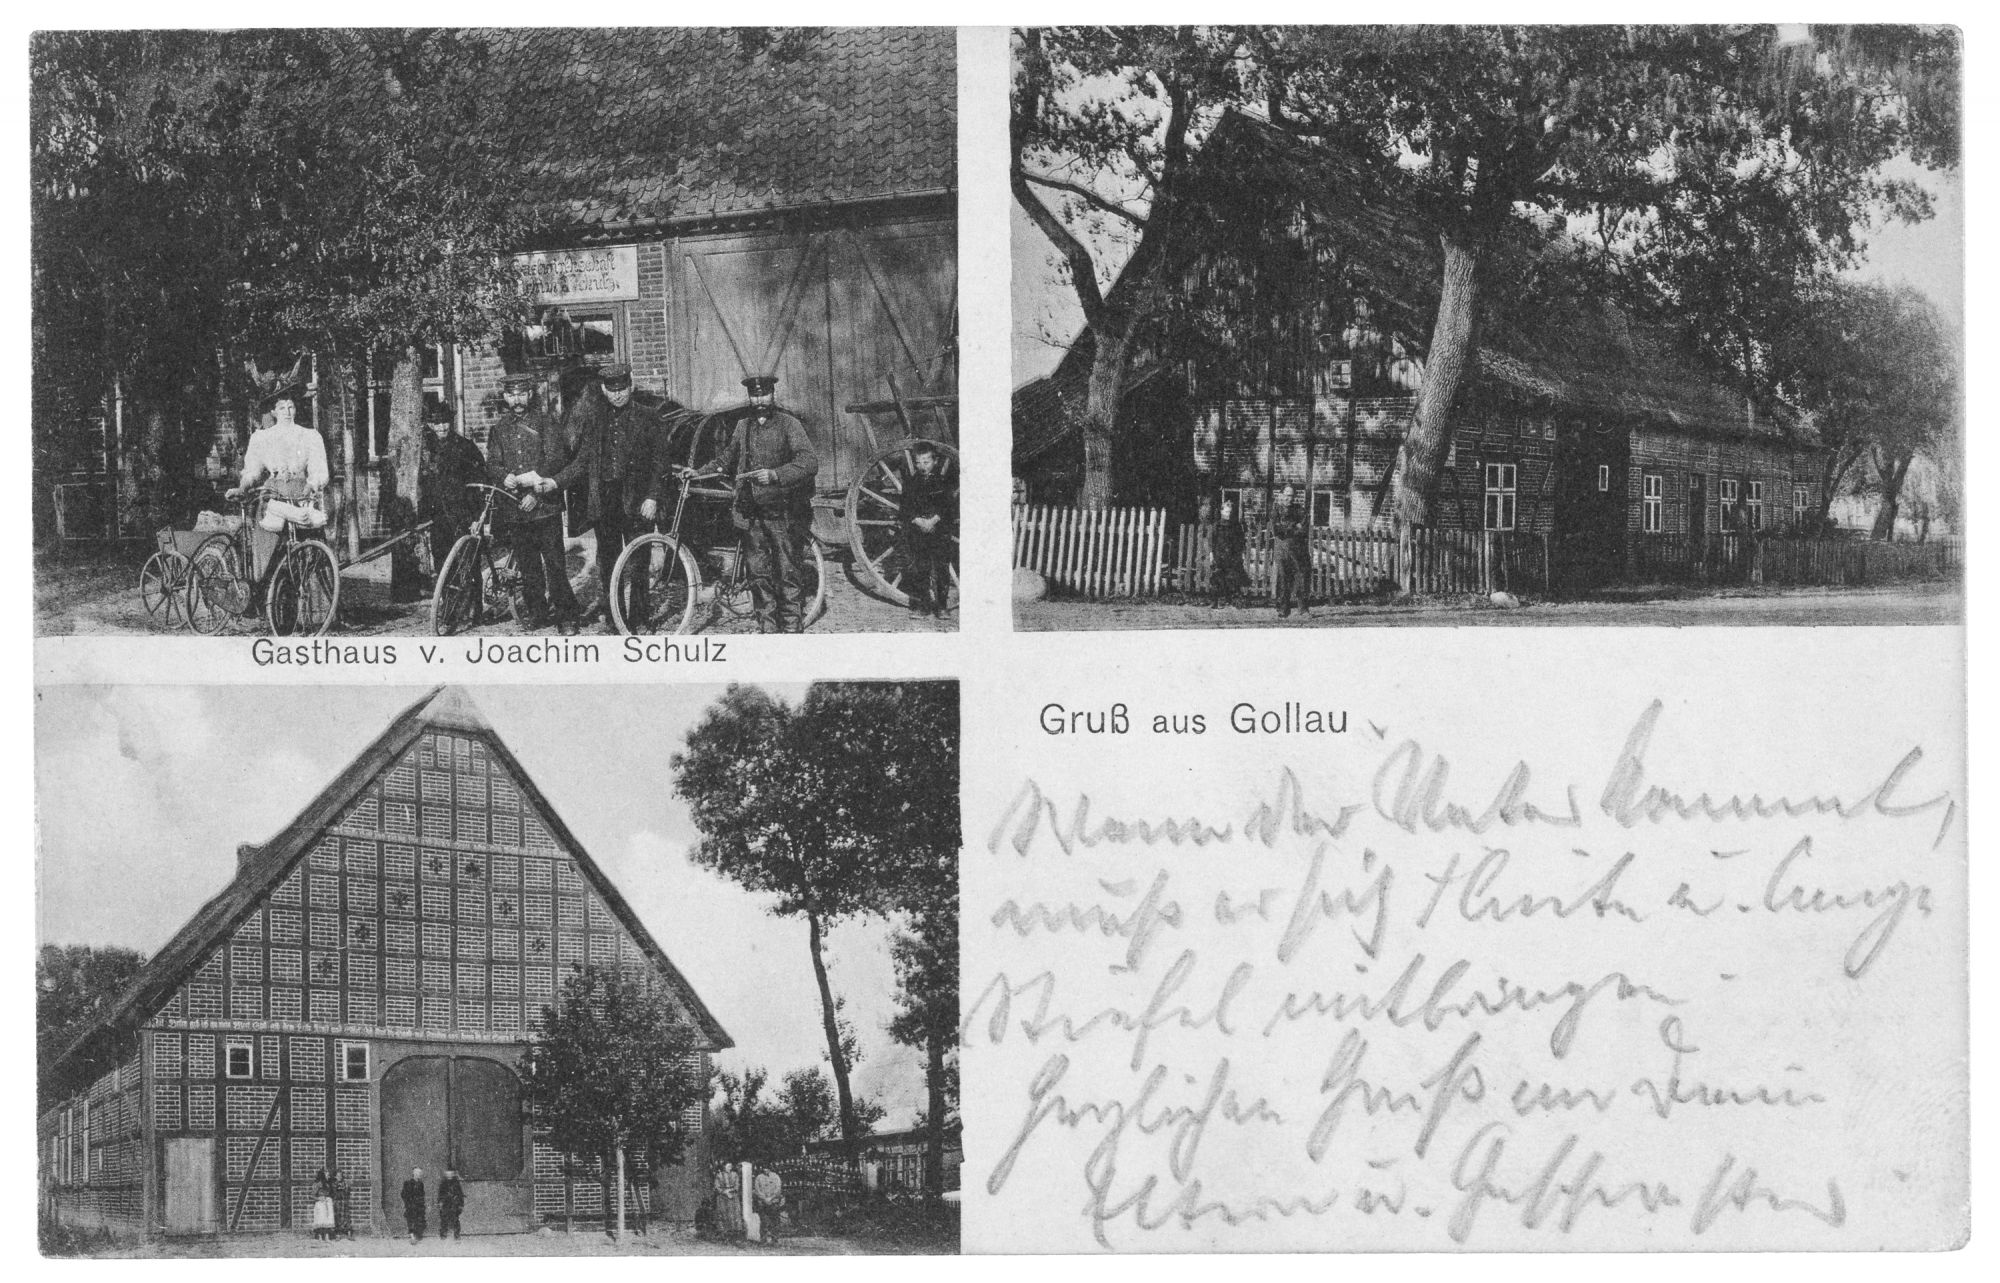 Gastwirthschaft
Schulz.
Gasthaus v. Joachim Schulz
Gruß aus Gollau
Wenn der Vater kommt,
muß er sich u. lange
Stiefel mitbringen.
Herzlichen Gruß an Deine
Eltern u. Geschwister